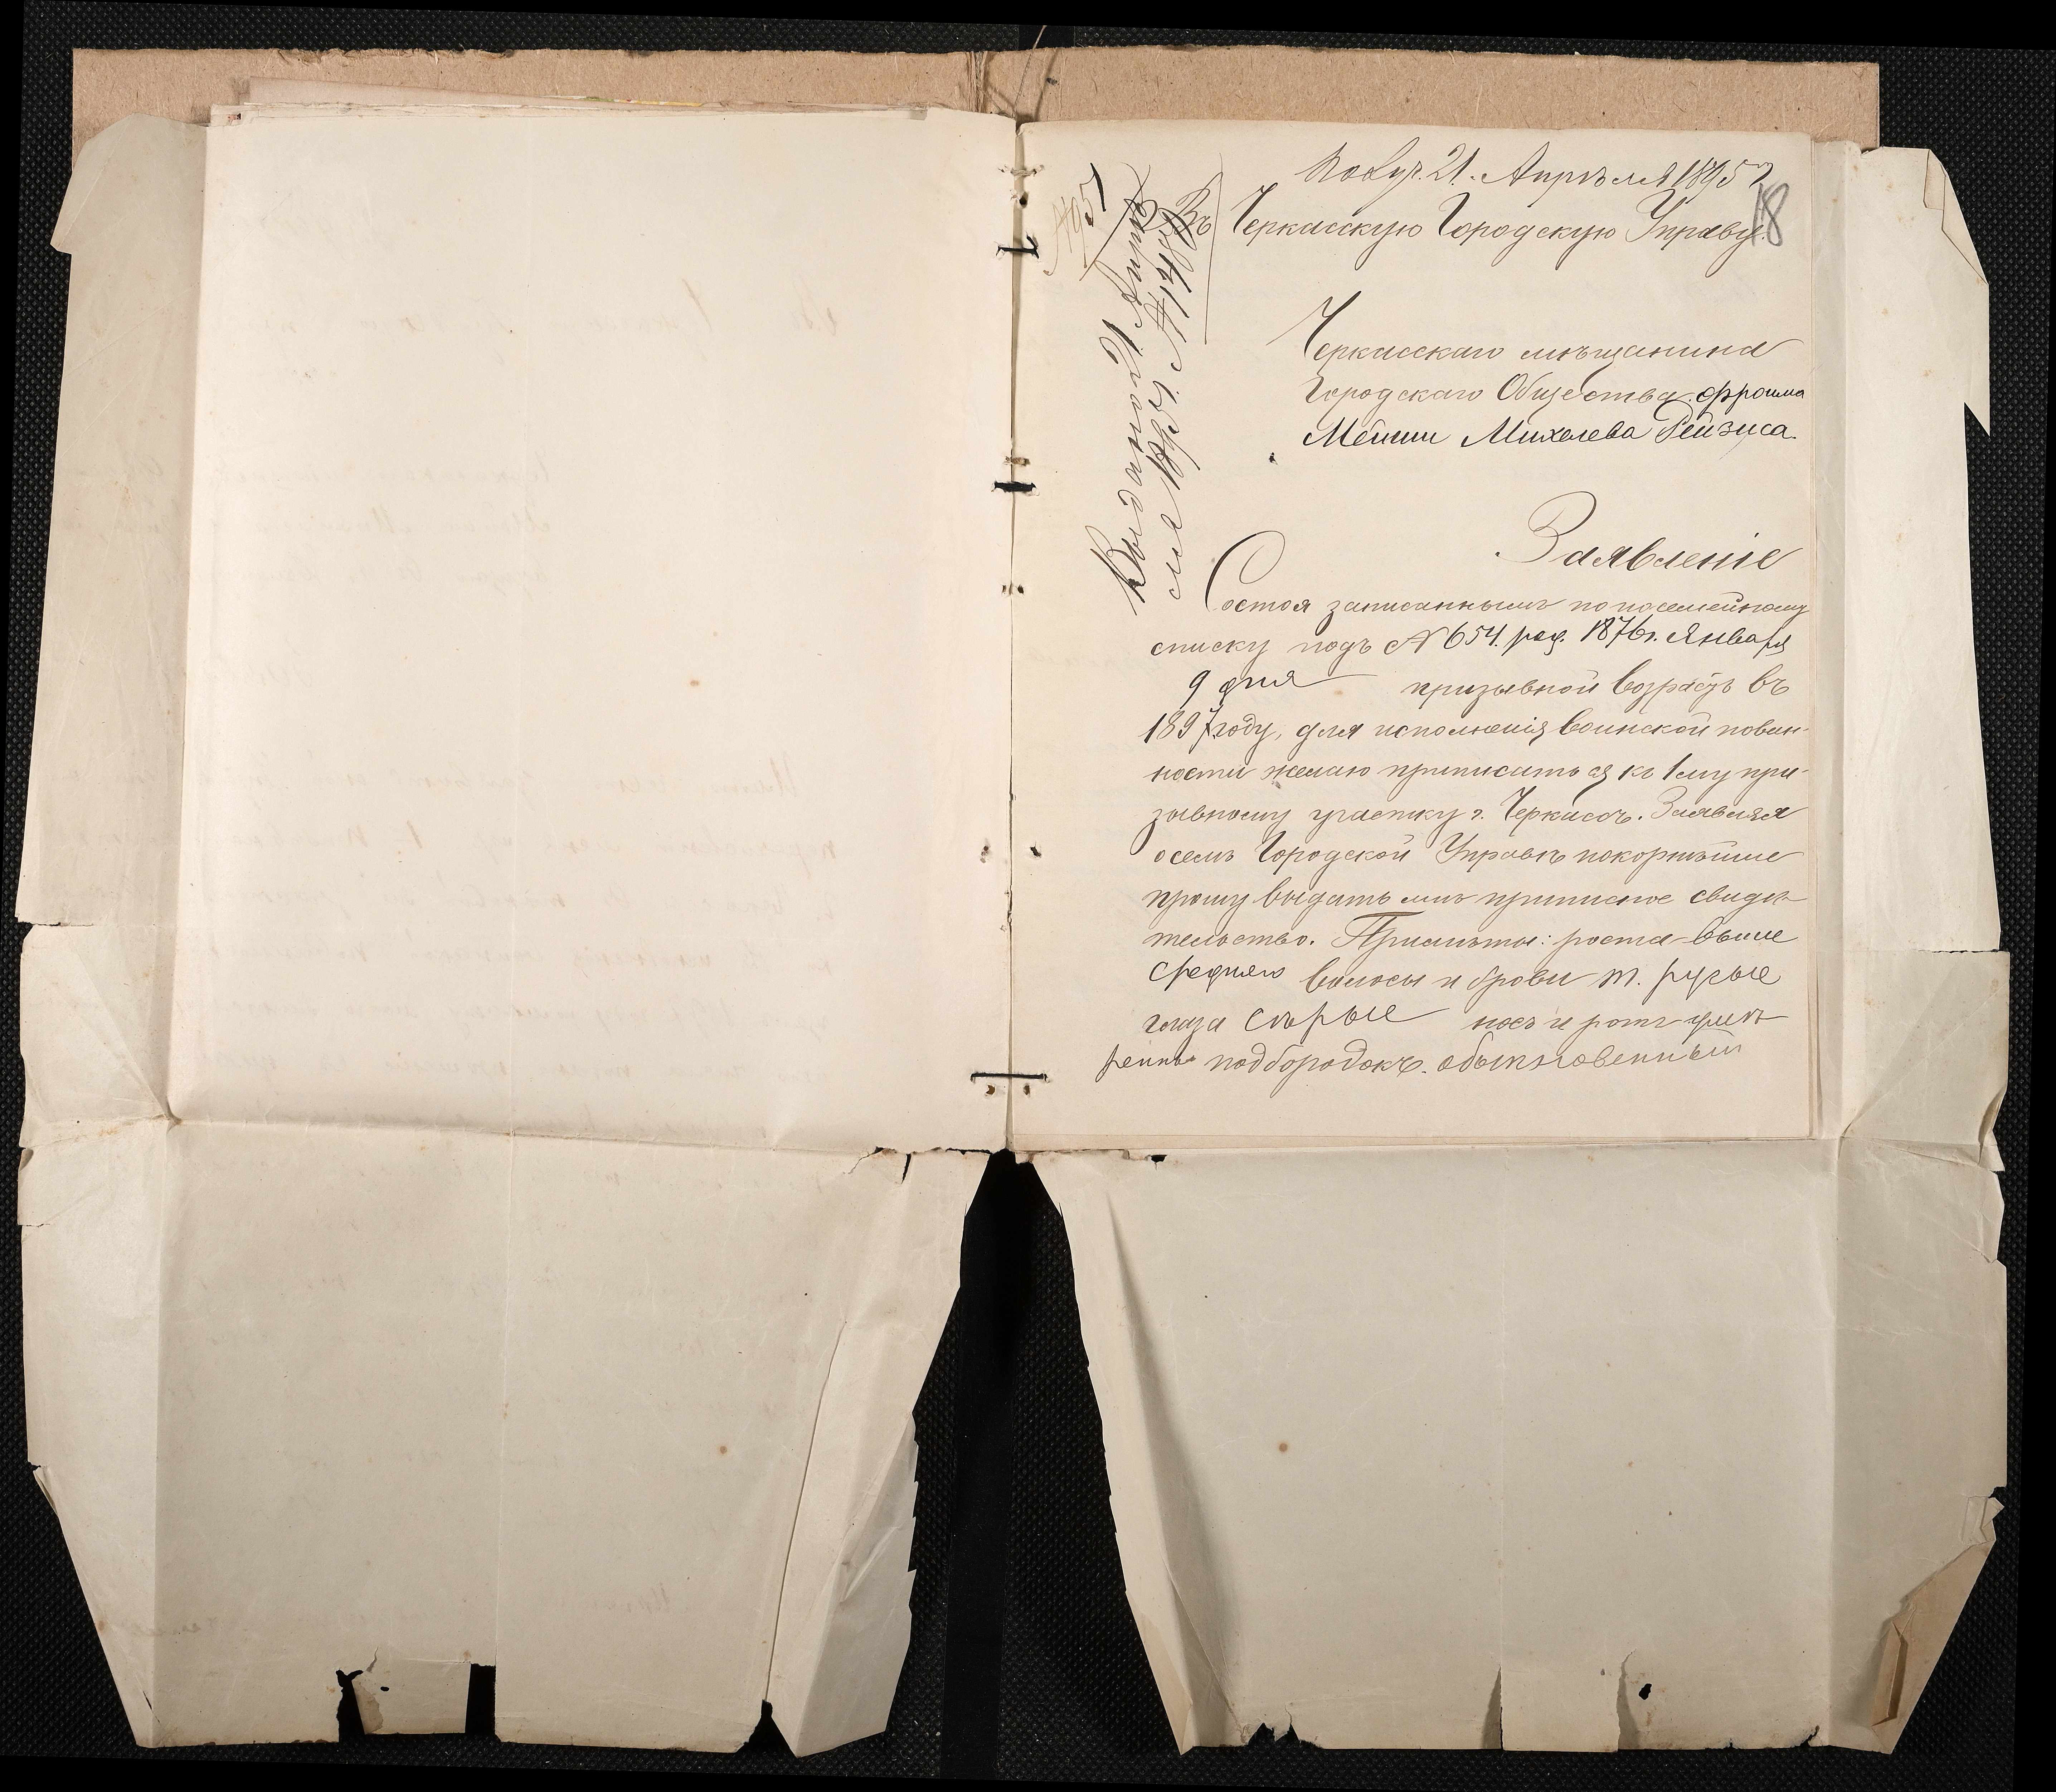 Получ. 21. Апрѣля 1895 г
18
Въ Черкасскую Городскую Управу.
Черкасскаго мѣщанина
Городскаго Общества Фроима
Мейши Михелева Рейзиса.
Заявленіе
Состоя записаннымъ по посемейному
списку подъ № 654. род. 1876 г. Января
9 дня призывной возрастъ въ
1897 году, для исполненія воинской повин-
ности желаю приписаться къ 1 му при-
зывному участку г. Черкасъ. Заявляя
о семъ Городской Управѣ покорнѣйше
прошу выдать мнѣ приписное свидѣ-
тельство. Примѣты: роста выше
средняго волосы и брови т. русые
глаза сѣрые носъ и ротъ умѣ-
ренны подбородокъ. обыкновенный